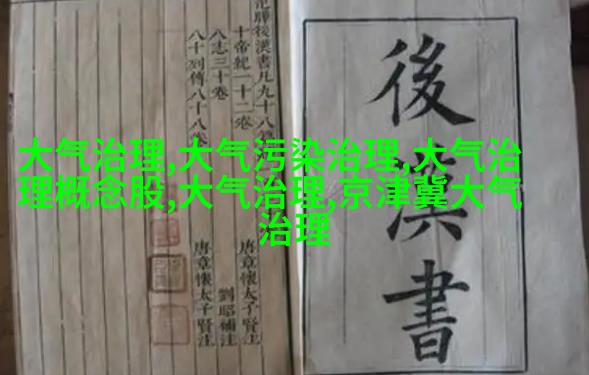 大气治理,大气污染治理,大气治
理概念股,大气治理,京津冀大气
治理
後漢書
後漢書凡九十八
十帝紀一十二卷 唐章懷太子賢注
八志三十卷 劉昭補注
八十列傳八十八卷 唐章懷太子賢注